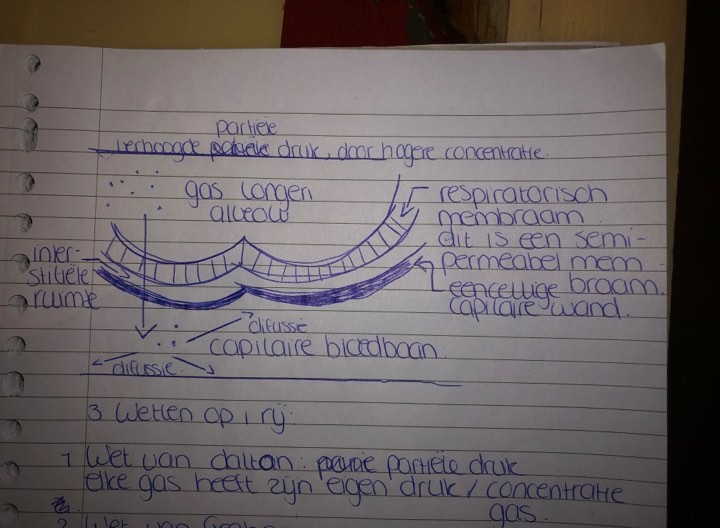 partiële
verhoogde druk, door hogere concentratie.
gas longen
alveoli
respiratorisch
membraam
dit is een semi-
permeabel mem
braam.
inter-
stitiële
ruimte
eencellige
capilaire wand.
difussie
capilaire bloedbaan
difussie
3 Wetten op 1 rij:
1 Wet van dalton: partiële druk
elke gas heeft zijn eigen druk / concentratie
gas.
2 Wet van